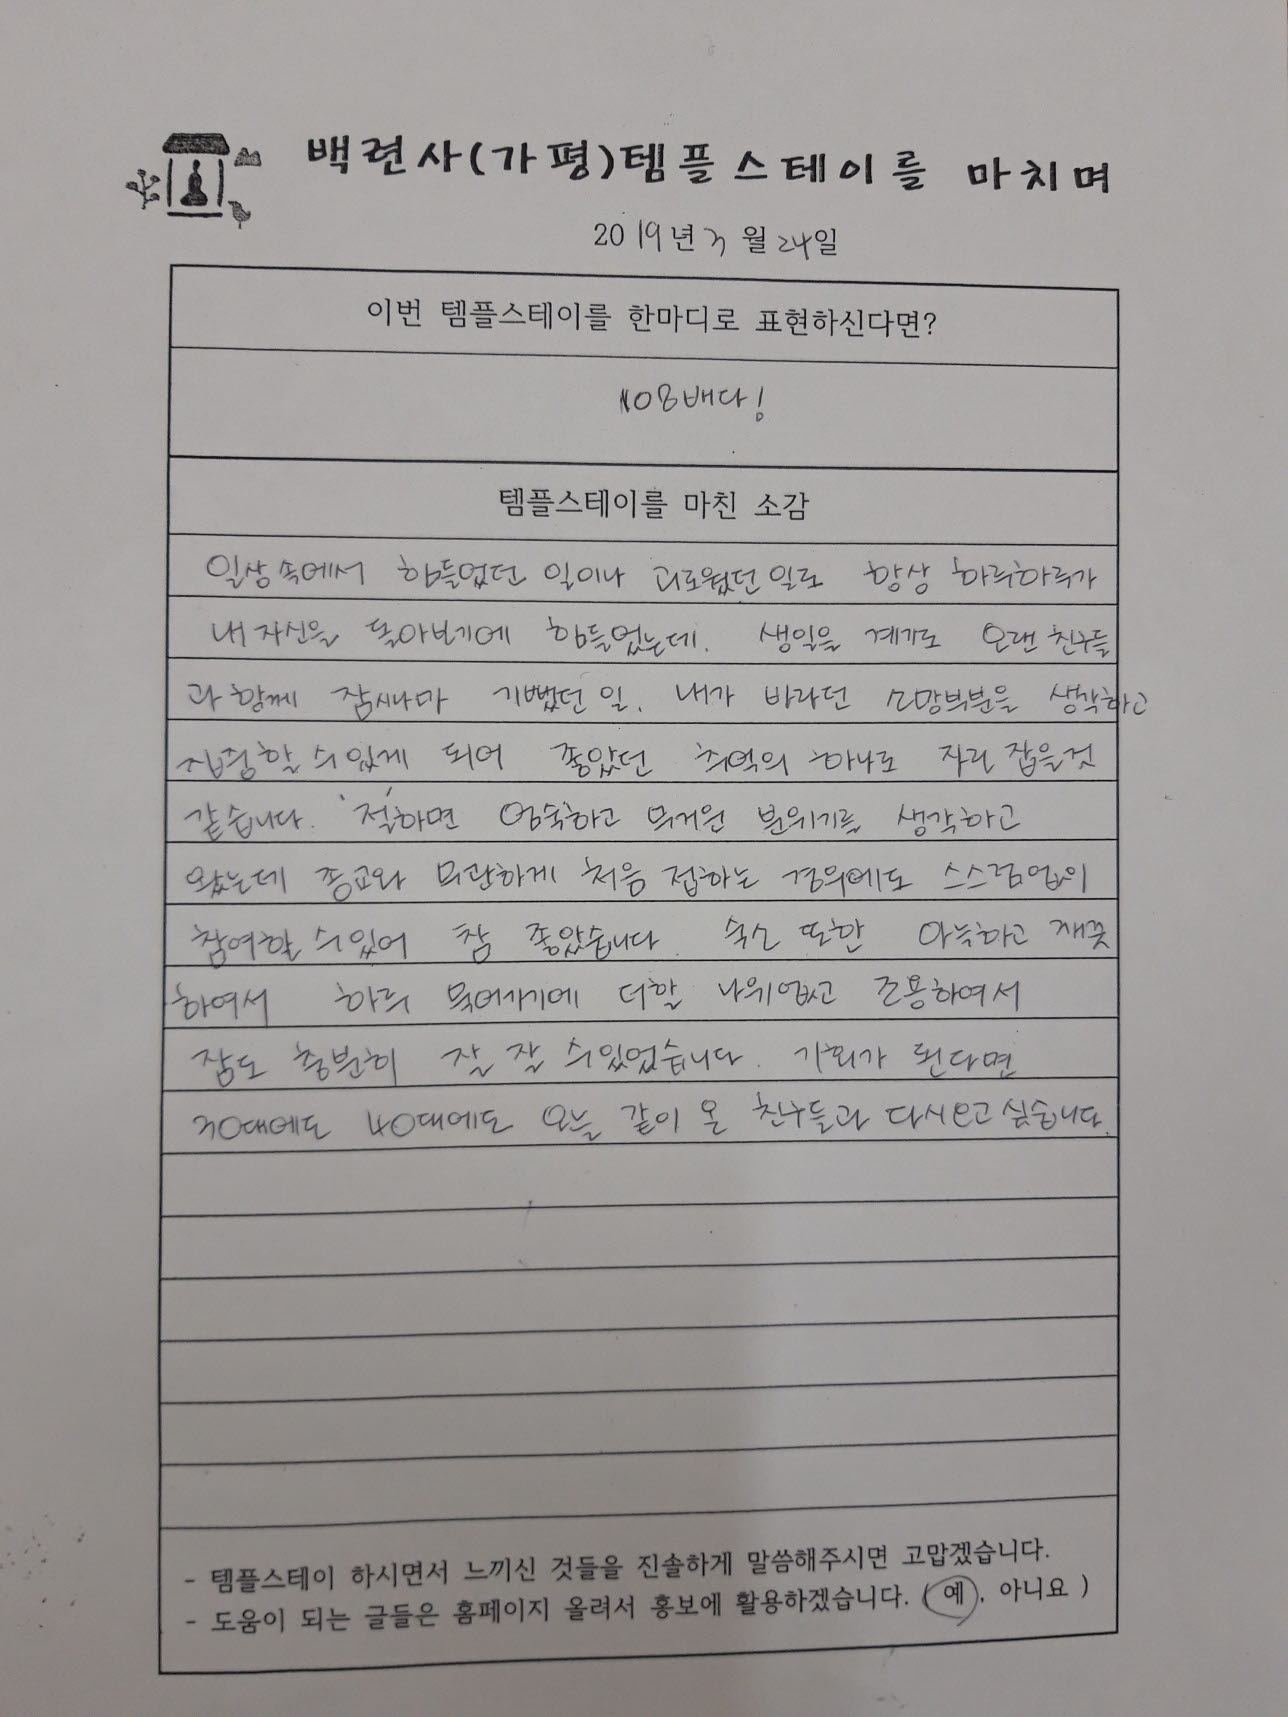 백련사(가평)템플스테이를 마치며
2019년 3월 24일
이번 템플스테이를 한마디로 표현하신다면?
108배다!
템플스테이를 마친 소감
일상 속에서 힘들었던 일이나 괴로웠던 일로 항상 하루하루가
내 자신을 돌아보기에 힘들었는데. 생일을 계기로 오랜 친구들
과 함께 잠시나마 기뻤던 일, 내가 바라던 소망부분을 생각하고
할 수 있게 되어 좋았던 추억의 하나로 자리 잡을것
같습니다. '절'하면 엄숙하고 무거운 분위기를 생각하고
왔는데 종교와 무관하게 처음 접하는 경우에도 스스럼없이
참여할 수 있어 참 좋았습니다 숙소 또한 아늑하고 깨끗
하여서 하루 묵어가기에 더할 나위없고 조용하여서
잠도 충분히 잘 잘 수있었습니다. 기회가 된다면
30대에도 40대에도 오늘 같이 온 친구들과 다시오고 싶습니다.
- 템플스테이 하시면서 느끼신 것들을 진솔하게 말씀해주시면 고맙겠습니다.
- 도움이 되는 글들은 홈페이지 올려서 홍보에 활용하겠습니다. ( 예, 아니요 )